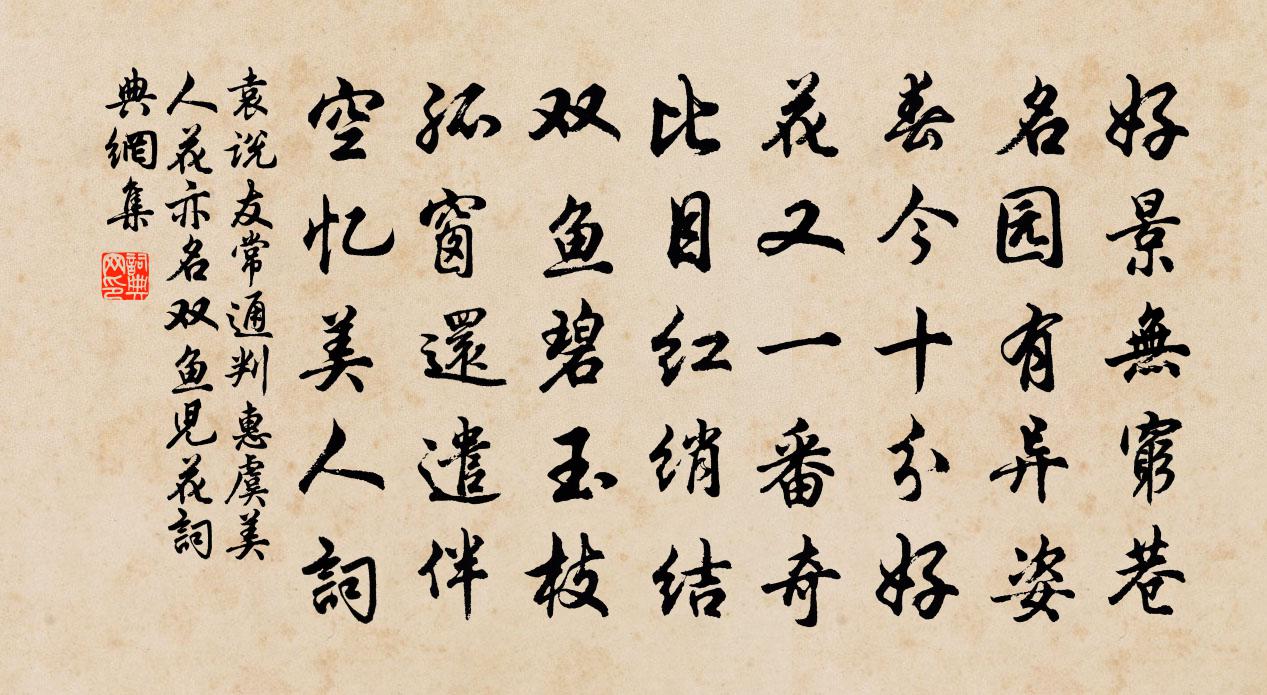 好景無窮巷
名园有异姿
春今十分好
花又一番奇
比目红绡结
双鱼碧玉枝
孤窗還遣伴
空忆美人詞
袁说友常通判惠虞美
人花亦名双鱼児花詞
典網集
詞典网印